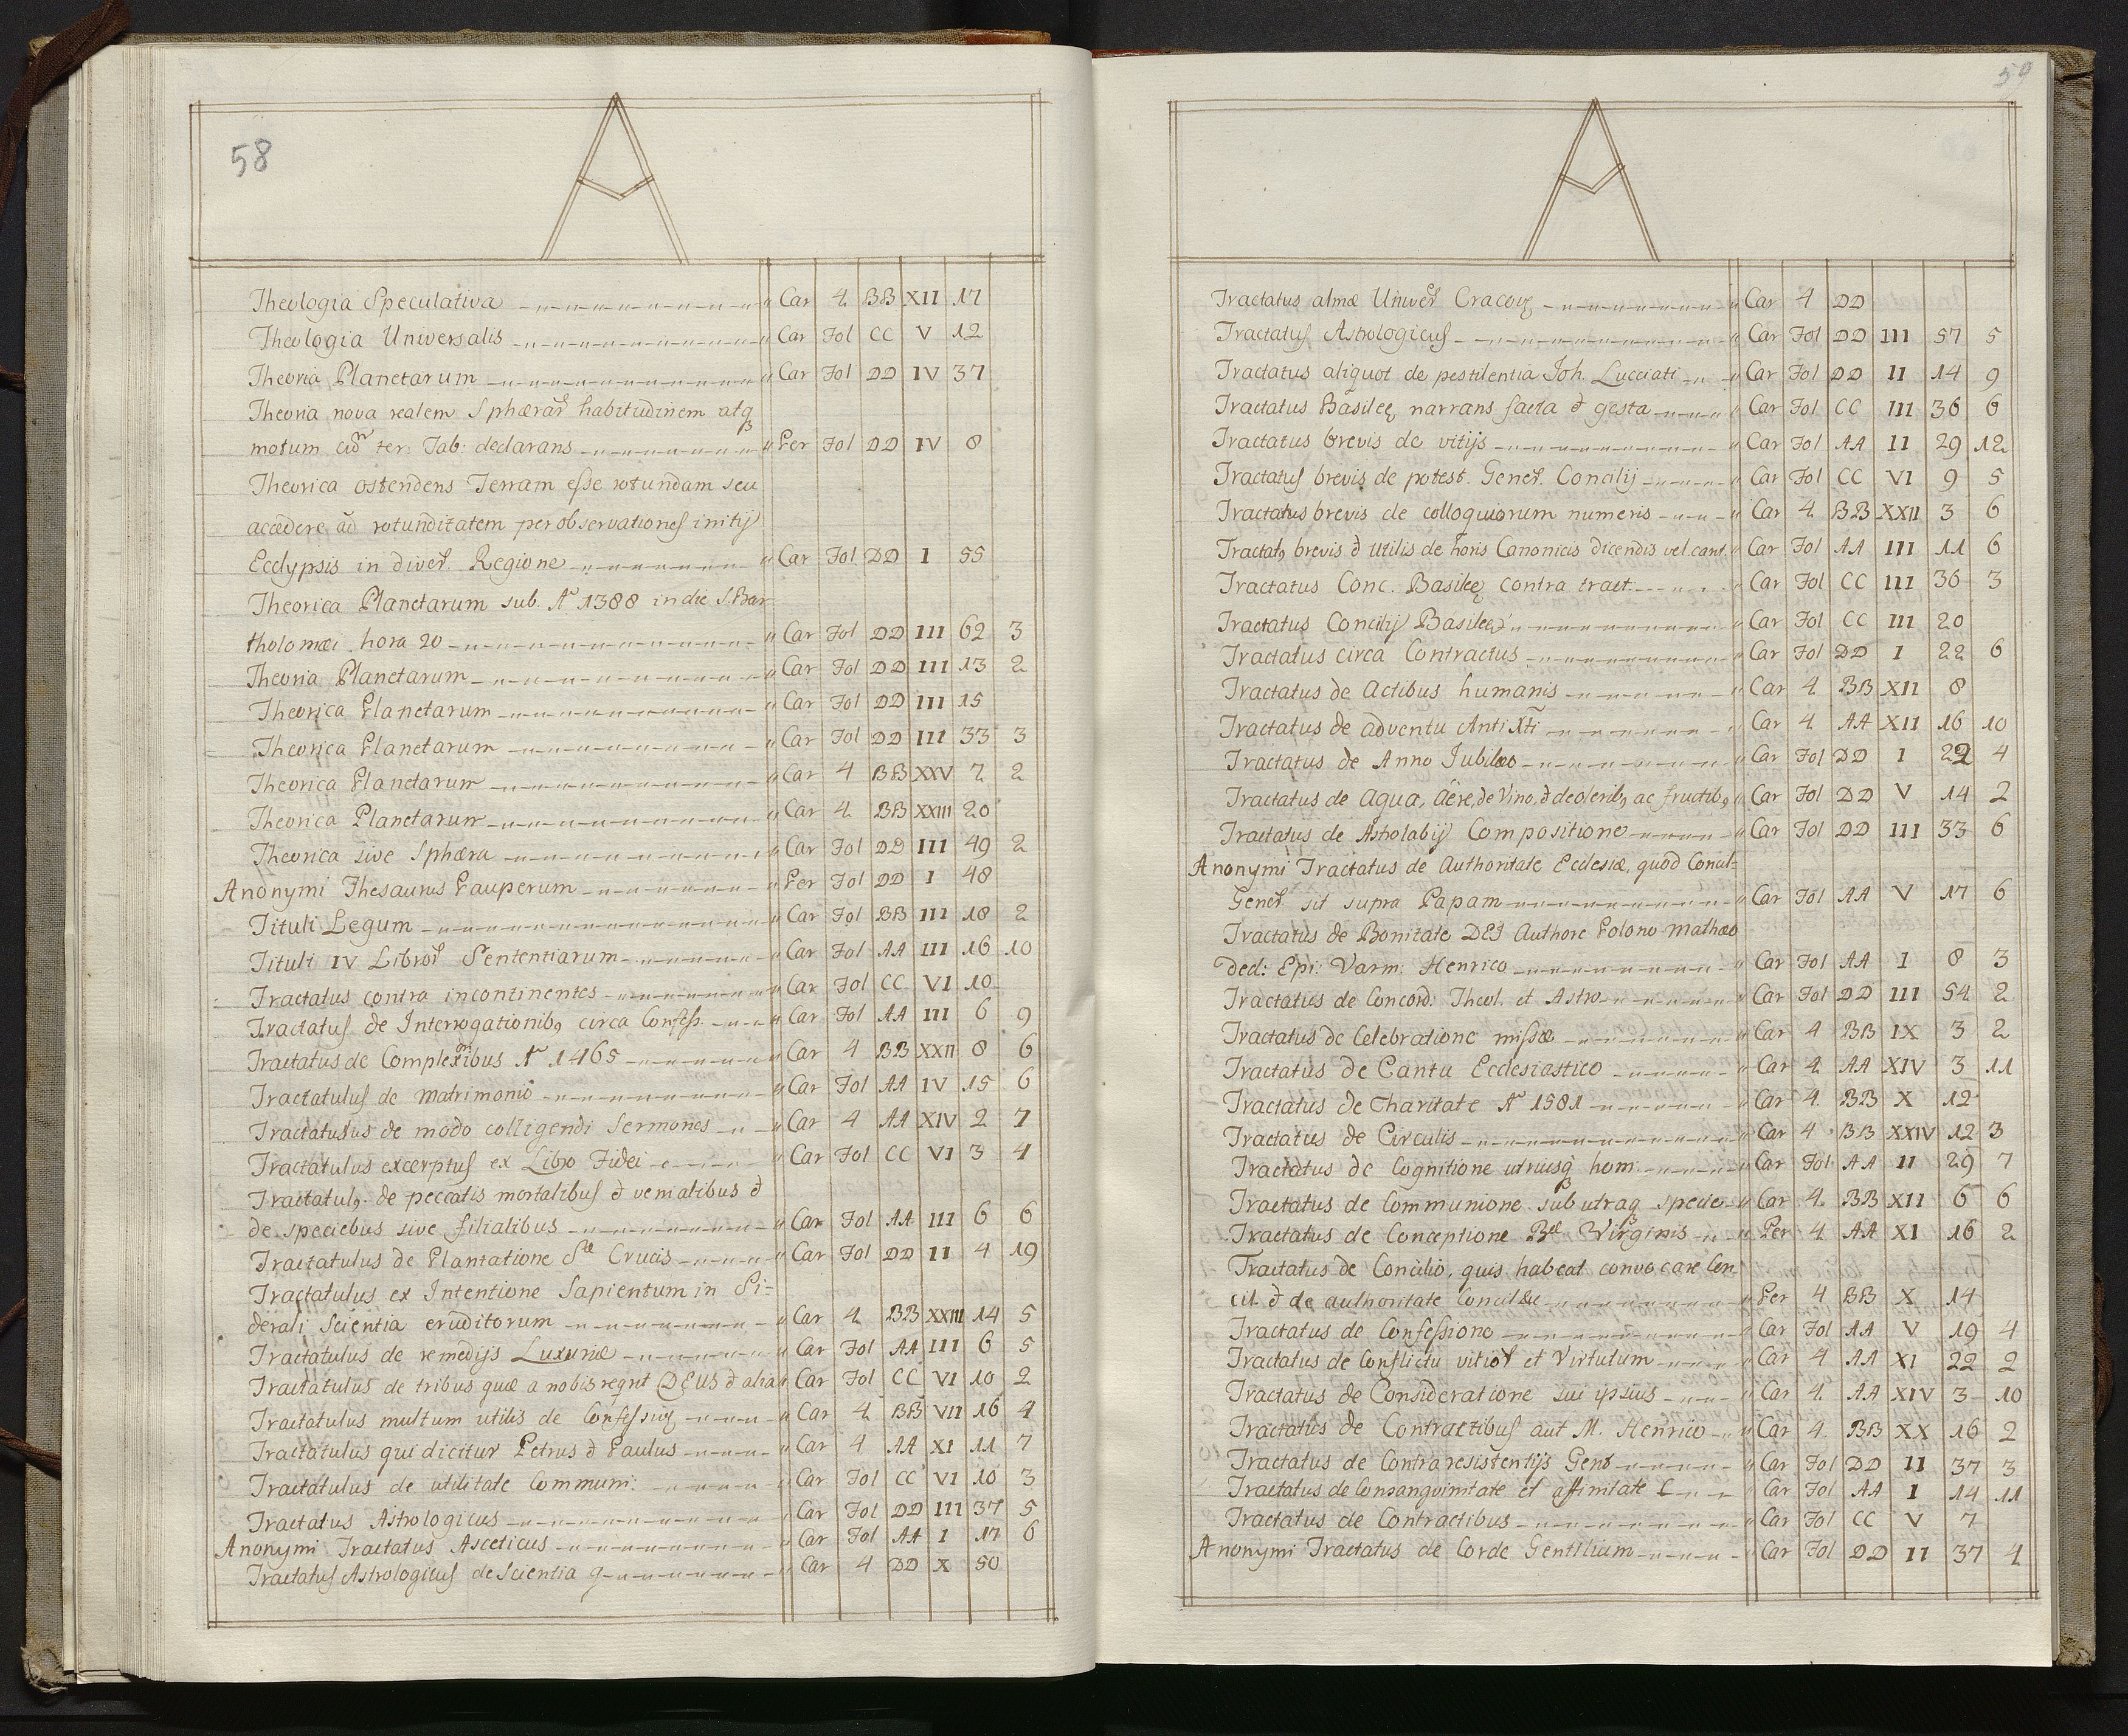 58
A
Theologia Speculativa Car 4 BB XII 17
Theologia Universalis Car Fol CC V 12
Theoria Planetarum Car Fol DD IV 37
Theoria nova realem Sphærar habitudinem atq
motum cum ter: Tab: declarans Per Fol DD IV 8
Theorica ostendens Terram esse rotundam seu
accedere ad rotunditatem per observationes initij
Ecclypsis in diver. Regione Car Fol DD I 55
Theorica Planetarum sub. Aº 1388 in die S. Bar
tholomæi hora 20 Car Fol DD III 62 3
Theoria Planetarum Car Fol DD III 13 2
Theorica Planetarum Car Fol DD III 15
Theorica Planetarum Car Fol DD III 33 3
Theorica Planetarum Car 4 BB XXV 7 2
Theorica Planetarum Car 4 BB XXIII 20
Theorica sive Sphæra Car Fol DD III 49 2
Anonymi Thesaurus Pauperum Per Fol DD I 48
Tituli Legum Car Fol BB III 18 2
Tituli IV Libror Sententiarum Car Fol AA III 16 10
Tractatus contra incontinentes Car Fol CC VI 10
Tractatus de Interrogationib9 circa Confess. Car Fol AA III 6 9
Tractatus de Complexibus Aº 1465 Car 4 BB XXII 8 6
Tractatulus de matrimonio Car Fol AA IV 15 6
Tractatusus de modo colligendi Sermones Car 4 AA XIV 2 7
Tractatulus excerptus ex Libro Fidei Car Fol CC VI 3 4
Tractatul9. de peccatis mortalibus & venialibus &
de speciebus sive filialibus Car Fol AA III 6 6
Tractatulus de Plantatione Stæ Crucis Car Fol DD II 4 19
Tractatulus ex Intentione Sapientum in Si=
derali Scientia eruditorum Car 4 BB XXIII 14 5
Tractatulus de remedijs Luxuriæ Car Fol AA III 6 5
Tractatulus de tribus quæ a nobis reqnt DEUS & alia Car Fol CC VI 10 2
Tractatulus multum utilis de Confessių Car 4 BB VII 16 4
Tractatulus qui dicitur Petrus & Paulus Car 4 AA XI 11 7
Tractatulus de utilitate Communi: Car Fol CC VI 10 3
Tractatus Astrologicus Car Fol DD III 37 5
Anonymi Tractatus Asceticus Car Fol AA I 17 6
Tractatus Astrologicus de Scientia Car 4 DD X 50
59
A
Tractatus almæ Univer Cracovę Car 4 DD
Tractatus Astrologicus Car Fol DD III 57 5
Tractatus aliquot de pestilentia Joh. Lucciati Car Fol DD II 14 9
Tractatus Basileę narrans facta & gesta Car Fol CC III 36 6
Tractatus brevis de vitijs Car Fol AA II 29 12
Tractatus brevis de potest. Gener. Concilij Car Fol CC VI 9 5
Tractatus brevis de colloquiorum numeris Car 4 BB XXII 3 6
Tractat9 brevis & utilis de horis Canonicis dicendis vel cant. Car Fol AA III 11 6
Tractatus Conc. Basileę contra tract. Car Fol CC III 36 3
Tractatus Concilij Basileę Car Fol CC III 20
Tractatus circa Contractus Car Fol DD I 22 6
Tractatus de Actibus humanis Car 4 BB XII 8
Tractatus de adventu Anti Xti Car 4 AA XII 16 10
Tractatus de Anno Jubilæo Car Fol DD I 22 4
Tractatus de Aqua, Aëre, de Vino, & de olerib9 ac fructib9 Car Fol DD V 14 2
Tractatus de Astrolabij Compositione Car Fol DD III 33 6
Anonymi Tractatus de Authoritate Ecclesiæ, quod Concil=
Gener sit supra Papam Car Fol AA V 17 6
Tractatus de Bonitate DEI Authore Polono Mathæo
ded: Epi: Varm: Henrico Car Fol AA I 8 3
Tractatus de Concord: Theol. et Astro Car Fol DD III 54 2
Tractatus de Celebratione missæ Car 4 BB IX 3 2
Tractatus de Cantu Ecclesiastico Car 4 AA XIV 3 11
Tractatus de Charitate Aº 1581 Car 4 BB X 12
Tractatus de Circulis Car 4 BB XXIV 12 3
Tractatus de Cognitione utriusq hom: Car Fol AA II 29 7
Tractatus de Communione sub utraq specie Car 4 BB XII 6 6
Tractatus de Conceptione Bæ Virginis Per 4 AA XI 16 2
Tractatus de Concilio, quis habeat convocare Con
cil. & de authoritate Concilii Per 4 BB X 14
Tractatus de Confessione Car Fol AA V 19 4
Tractatus de Conflictu vitior et Virtutum Car 4 AA XI 22 2
Tractatus de Consideratione sui ipsius Car 4 AA XIV 3 10
Tractatus de Contractibus aut M. Henrico Car 4 BB XX 16 2
Tractatus de Contraresistentijs Gent Car Fol DD II 37 3
Tractatus de Consanguinitate et affinitate Car Fol AA I 14 11
Tractatus de Contractibus Car Fol CC V 7
Anonymi Tractatus de Corde Gentilium Car Fol DD II 37 4